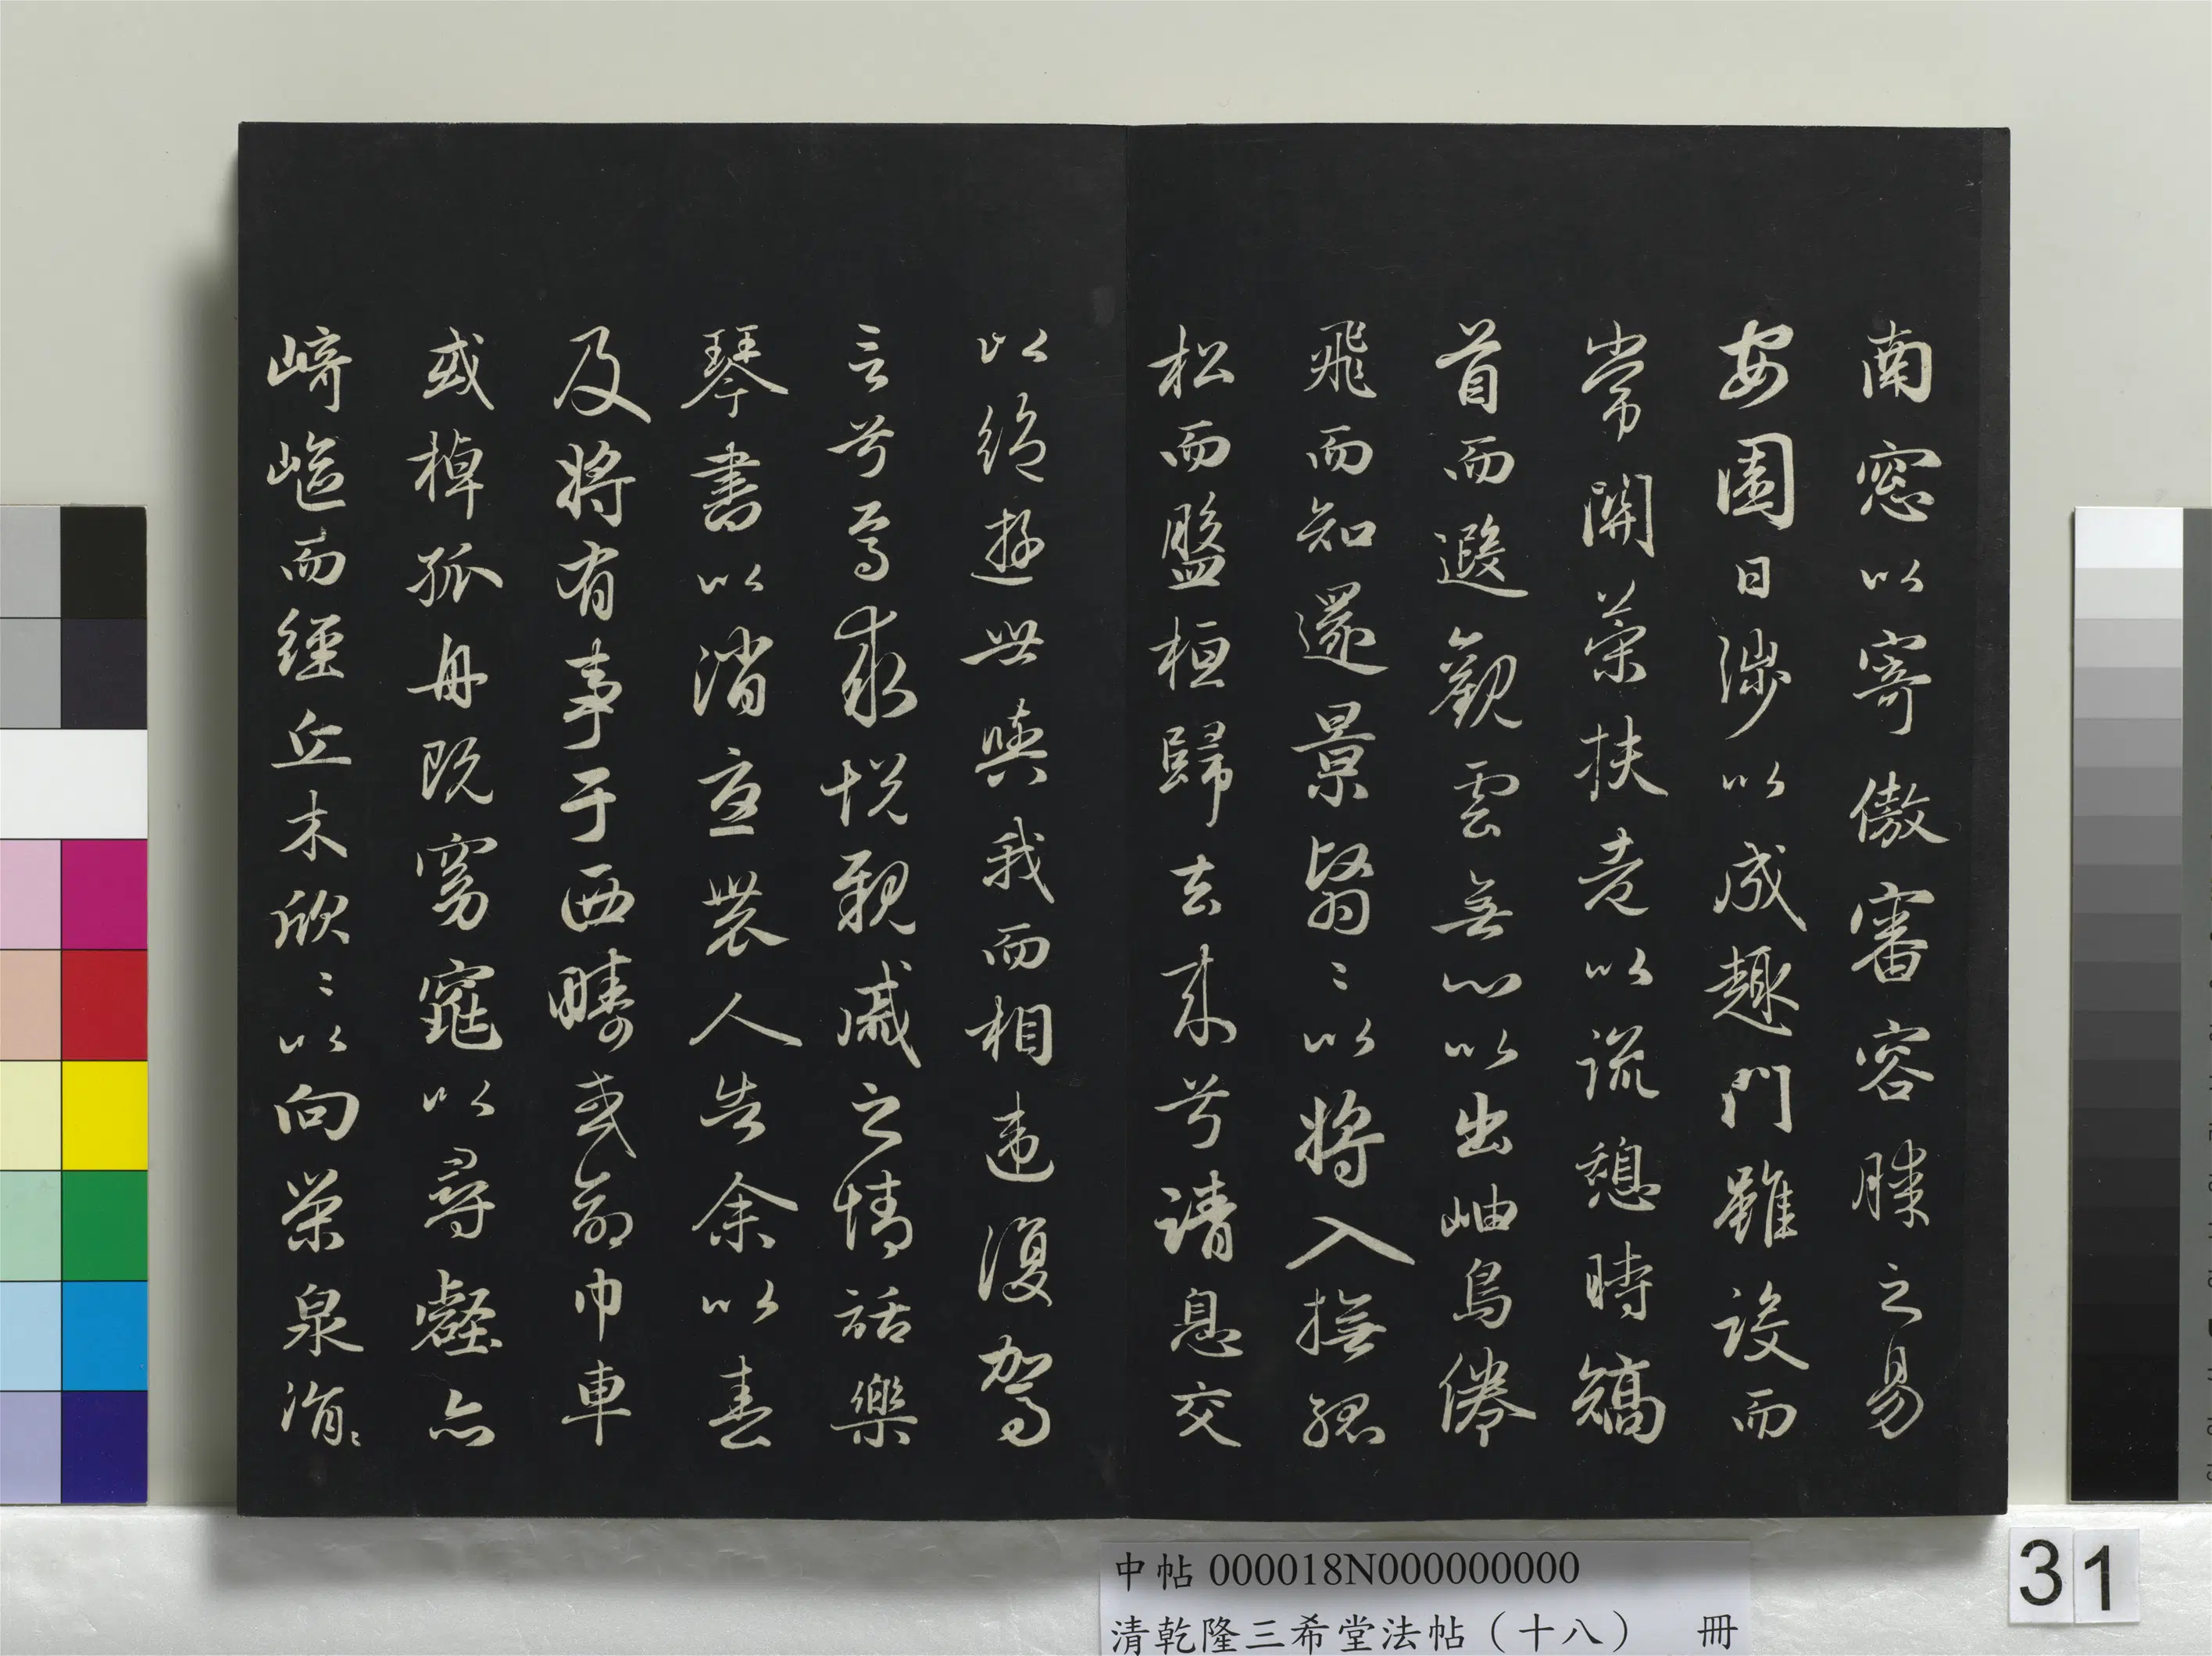 南窓以寄傲審容膝之易
安園日涉以成趣門雖設而
常關策扶老以流憩時矯
首而遐觀雲無心以出岫鳥倦
飛而知還景翳〻以將入撫孤
松而盤桓歸去来兮請息交
以絕遊世與我而相違復駕
言兮焉求悅親戚之情話樂
琴書以消憂農人告余以春
及將有事于西疇或命巾車
或棹孤舟既窈窕以尋壑亦
崎嶇而經丘木欣〻以向榮泉涓〻
中帖 000018N000000000
清乾隆三希堂法帖（十八） 冊
31